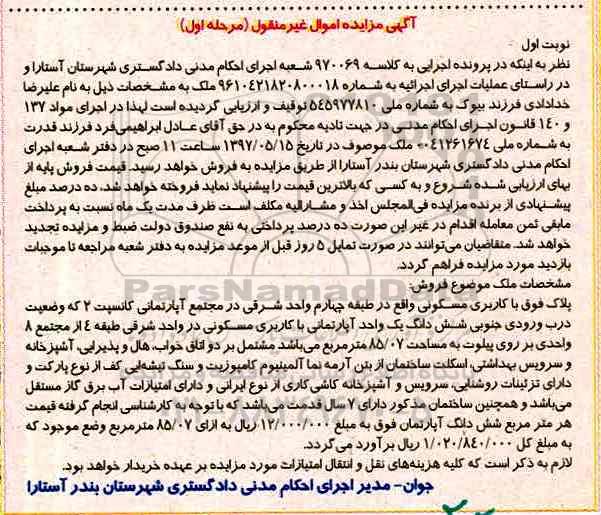 آگهی مزایده اموال غیرمنقول (مرحله اول)
نوبت اول
نظر به اینکه در پرونده اجرایی به کلاسه ۹۷۰۰۶۹ شعبه اجرای احکام مدنی دادگستری شهرستان آستارا و
در راستای عملیات اجرای اجرائیه به شماره ۹۶۱۰۴۲۱۸۲۰۸۰۰۰۱۸ ملک به مشخصات ذیل به نام علیرضا
خدادادی فرزند بیوک به شماره ملی ۵۴۵۹۷۷۸۱۰ توقیف و ارزیابی گردیده است لهذا در اجرای مواد ۱۳۷
و ۱۴۰ قانون اجرای احکام مدنی در جهت تادیه محکوم به در حق آقای عادل ابراهیمی‌فرد فرزند قدرت
به شماره ملی ۰۰۴۱۲۶۱۶۷۴ ملک موصوف در تاریخ ۱۳۹۷/۰۵/۱۵ ساعت ۱۱ صبح در دفتر شعبه اجرای
احکام مدنی دادگستری شهرستان بندر آستارا از طریق مزایده به فروش خواهد رسید. قیمت فروش پایه از
بهای ارزیابی شده شروع و به کسی که بالاترین قیمت را پیشنهاد نماید فروخته خواهد شد، ده درصد مبلغ
پیشنهادی از برنده مزایده فی‌المجلس اخذ و مشارالیه مکلف است ظرف مدت یک ماه نسبت به پرداخت
مابقی ثمن معامله اقدام در غیر این صورت ده درصد پرداختی به نفع صندوق دولت ضبط و مزایده تجدید
خواهد شد. متقاضیان می‌توانند در صورت تمایل ۵ روز قبل از موعد مزایده به دفتر شعبه مراجعه تا موجبات
بازدید مورد مزایده فراهم گردد.
مشخصات ملک موضوع فروش:
پلاک فوق با کاربری مسکونی واقع در طبقه چهارم واحد شرقی در مجتمع آپارتمانی کانسپت ۲ که وضعیت
درب ورودی جنوبی شش دانگ یک واحد آپارتمانی با کاربری مسکونی در واحد شرقی طبقه ۴ از مجتمع ۸
واحدی بر روی پیلوت به مساحت ۸۵/۰۷ مترمربع می‌باشد مشتمل بر دو اتاق خواب، هال و پذیرایی، آشپزخانه
و سرویس بهداشتی، اسکلت ساختمان از بتن آرمه نما آلمینیوم کامپوزیت و سنگ تیشه‌ایی کف از نوع پارکت و
دارای تزئینات روشنایی، سرویس و آشپزخانه کاشی‌کاری از نوع ایرانی و دارای امتیازات آب برق گاز مستقل
می‌باشد و همچنین ساختمان مذکور دارای ۷ سال قدمت می‌باشد که با توجه به کارشناسی انجام گرفته قیمت
هر متر مربع شش دانگ آپارتمان فوق به مبلغ ۱۲/۰۰۰/۰۰۰ ریال به ازای ۸۵/۰۷ مترمربع وضع موجود که
به مبلغ کل ۱/۰۲۰/۸۴۰/۰۰۰ ریال برآورد می‌گردد.
لازم به ذکر است که کلیه هزینه‌های نقل و انتقال امتیازات مورد مزایده بر عهده خریدار خواهد بود.
جوان- مدیر اجرای احکام مدنی دادگستری شهرستان بندر آستارا
ParsNamadData